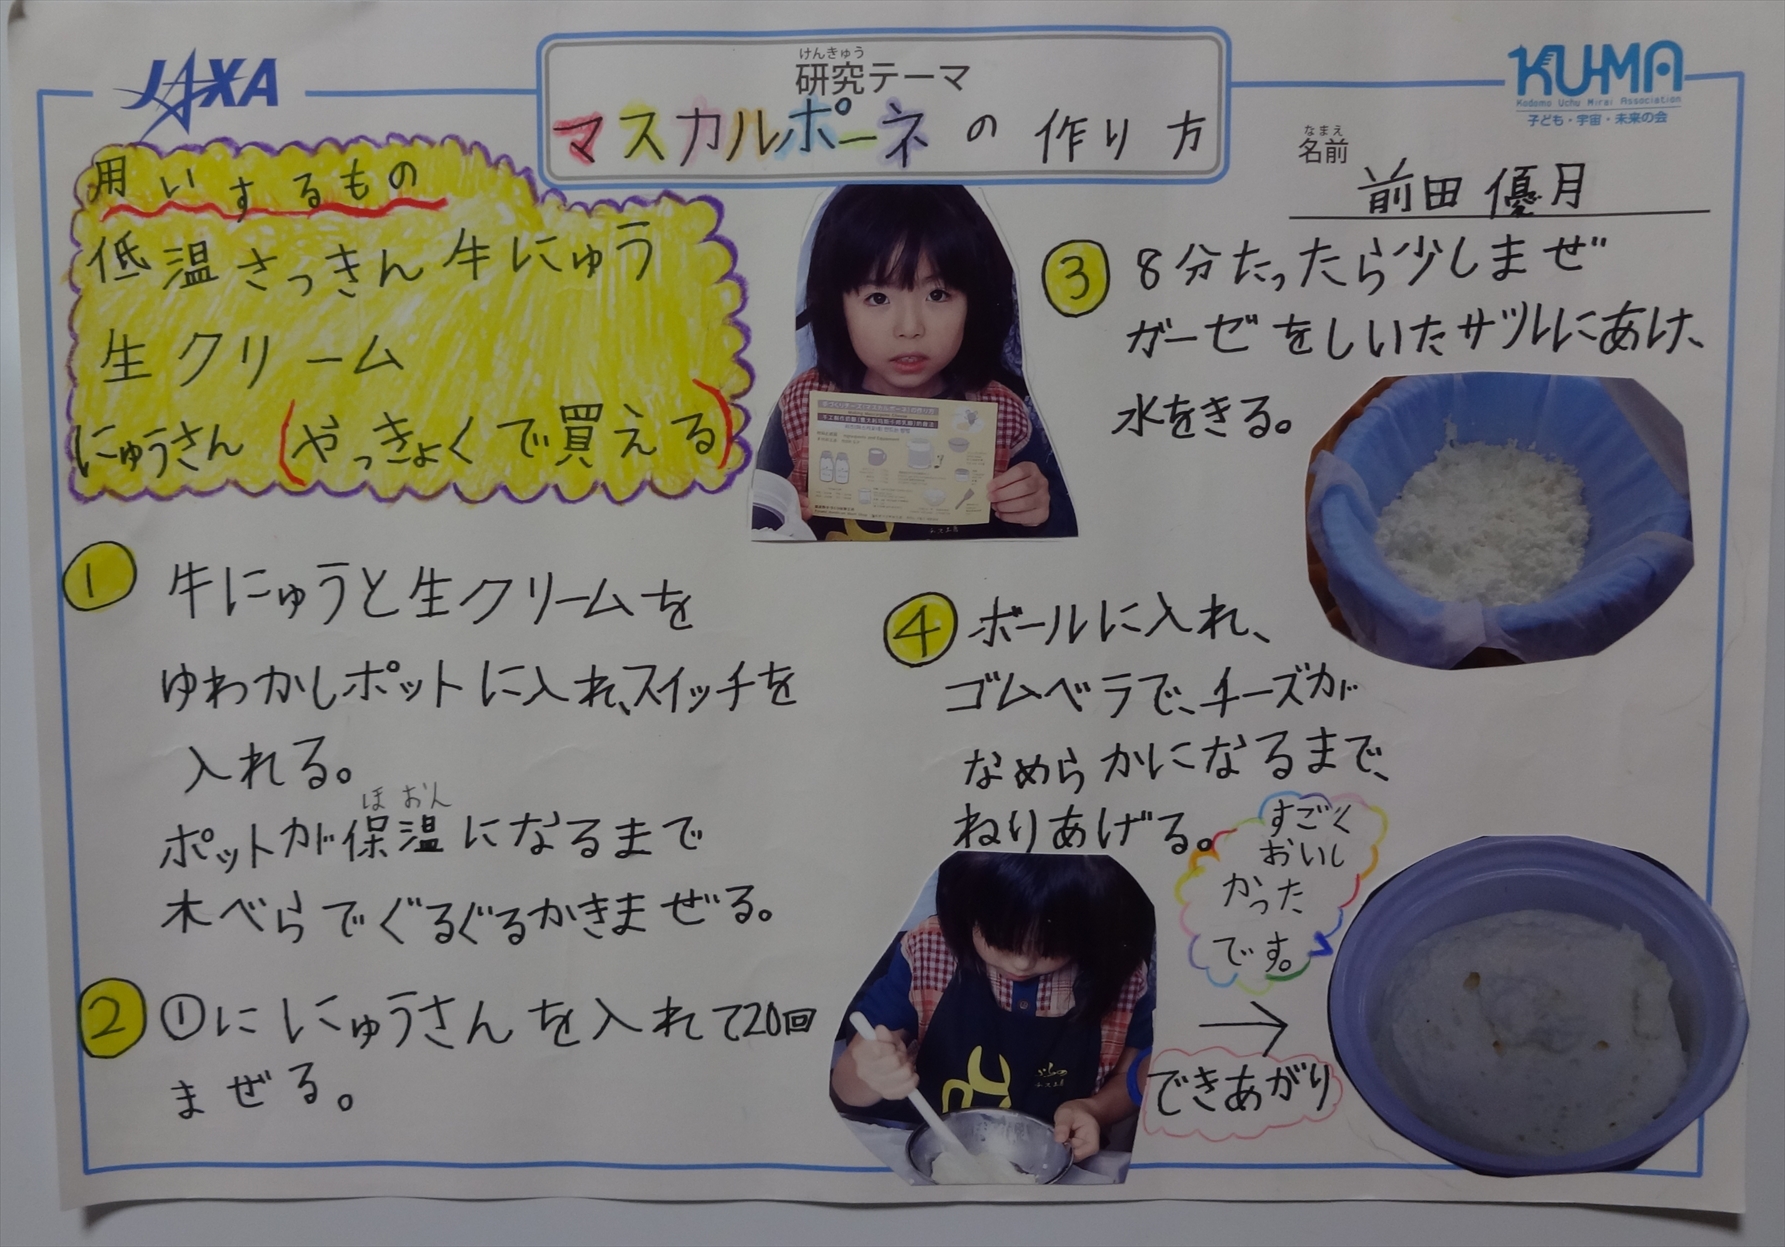 JAXA
けんきゅう
研究テーマ
マスカルポーネの作り方
KU-MA
Kodomo Uchu Mirai Association
子ども・宇宙・未来の会
なまえ
名前
前田優月
用いするもの
低温さっきん牛にゅう
生クリーム
にゅうさん(やっきょくで買える)
① 牛にゅうと生クリームを
ゆわかしポットに入れ、スイッチを
入れる。
ほおん
ポットが保温になるまで
木べらでぐるぐるかきまぜる。
② ①ににゅうさんを入れて20回
まぜる。
③ 8分たったら少しまぜ
ガーゼをしいたサツルにあけ、
水をきる。
④ ボールに入れ、
ゴムベラで、チーズが
なめらかになるまで、
ねりあげる。
すごく
おいし
かった
です。
→
できあがり